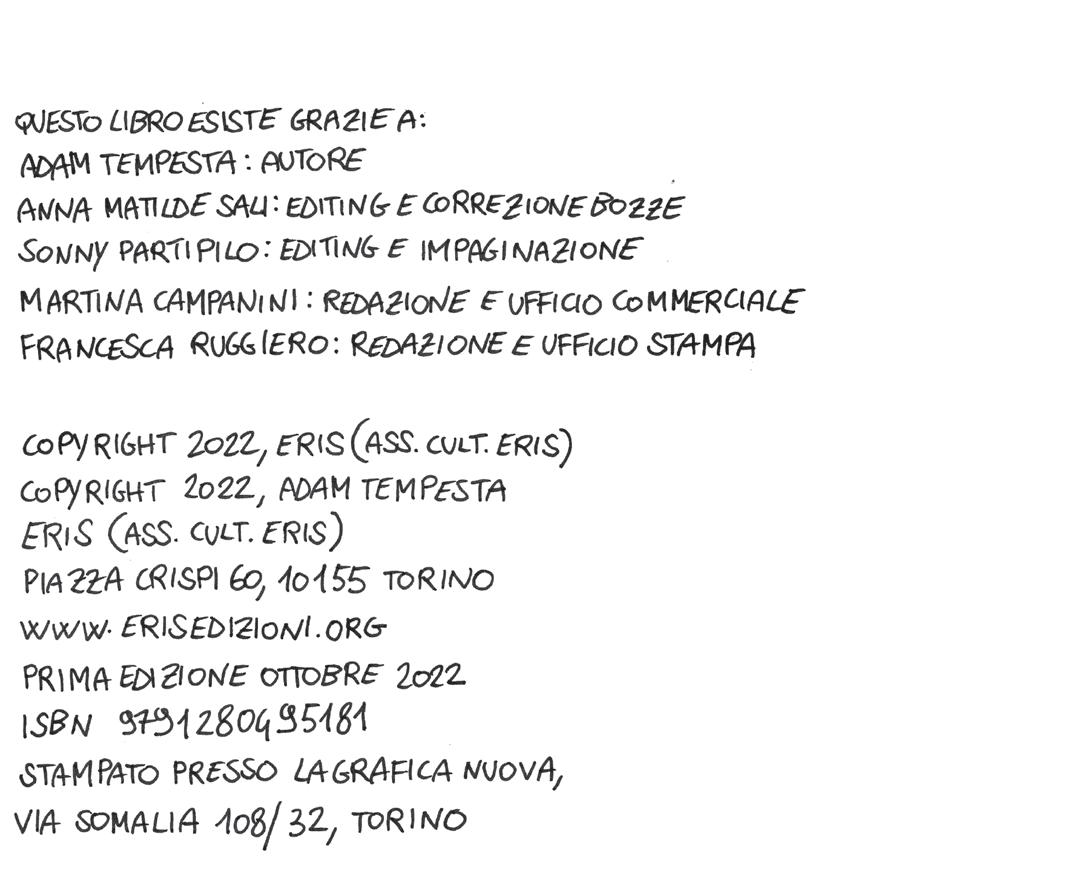 QUESTO LIBRO ESISTE GRAZIE A:
ADAM TEMPESTA: AUTORE
ANNA MATILDE SALI: EDITING E CORREZIONE BOZZE
SONNY PARTIPILO: EDITING E IMPAGINAZIONE
MARTINA CAMPANINI: REDAZIONE E UFFICIO COMMERCIALE
FRANCESCA RUGGIERO: REDAZIONE E UFFICIO STAMPA
COPYRIGHT 2022, ERIS (ASS. CULT. ERIS)
COPYRIGHT 2022, ADAM TEMPESTA
ERIS (ASS. CULT. ERIS)
PIAZZA CRISPI 60, 10155 TORINO
WWW.ERISEDIZIONI.ORG
PRIMA EDIZIONE OTTOBRE 2022
ISBN 9791280495181
STAMPATO PRESSO LA GRAFICA NUOVA,
VIA SOMALIA 108/32, TORINO